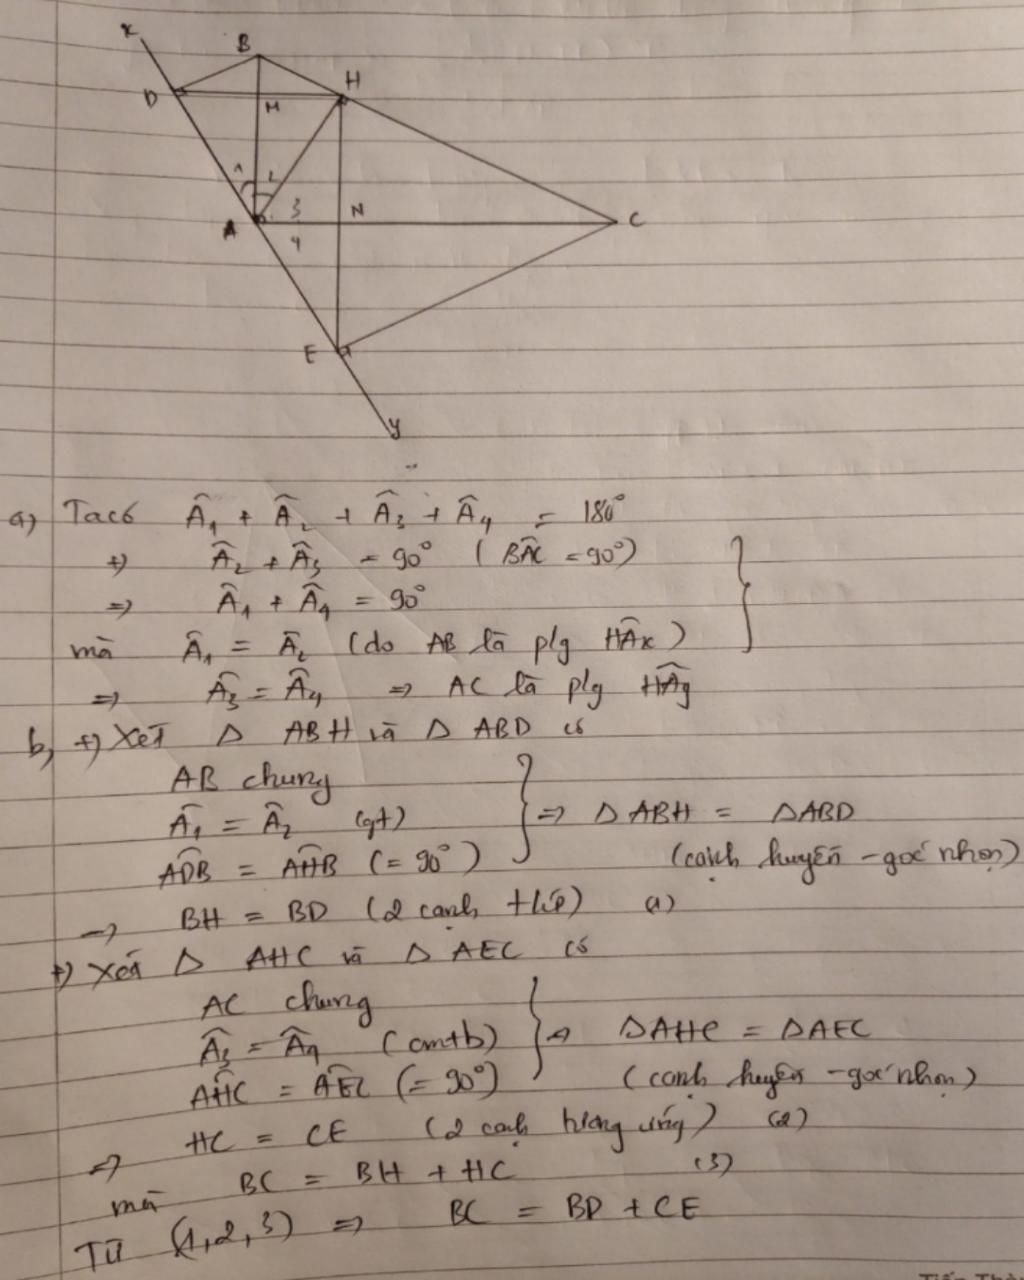 x
B
H
D
M
1 2
3
A
N
C
4
E
y
a) Ta có Â₁ + Â₂ + Â₃ + Â₄ = 180°
+) Â₂ + Â₃ = 90° (BÂC = 90°)
=> Â₁ + Â₄ = 90°
mà Â₁ = Â₂ (do AB là p/g HÂx)
=> Â₃ = Â₄ => AC là p/g HÂy
b, +) Xét Δ ABH và Δ ABD có
AB chung
Â₁ = Â₂ (gt) => Δ ABH = ΔABD
ADB = AHB (= 90°) (cạnh huyền - góc nhọn)
=> BH = BD (2 cạnh t/ứ) (1)
+) Xét Δ AHC và Δ AEC có
AC chung
Â₃ = Â₄ (cmtb) => ΔAHC = ΔAEC
AHC = AEC (= 90°) (cạnh huyền - góc nhọn)
=> HC = CE (2 cạnh tương ứng) (2)
mà BC = BH + HC (3)
Từ (1,2,3) => BC = BD + CE